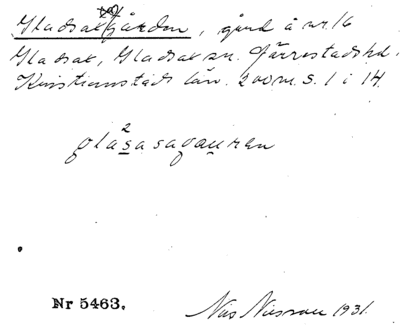 Gladsaxgården, gård å nr 16
Gladsax, Gladsax sn. Järrestads hd.
Kristianstads län. 200 m. S. 1 i 14.
Nr 5463.
Nils Nilsson 1931.